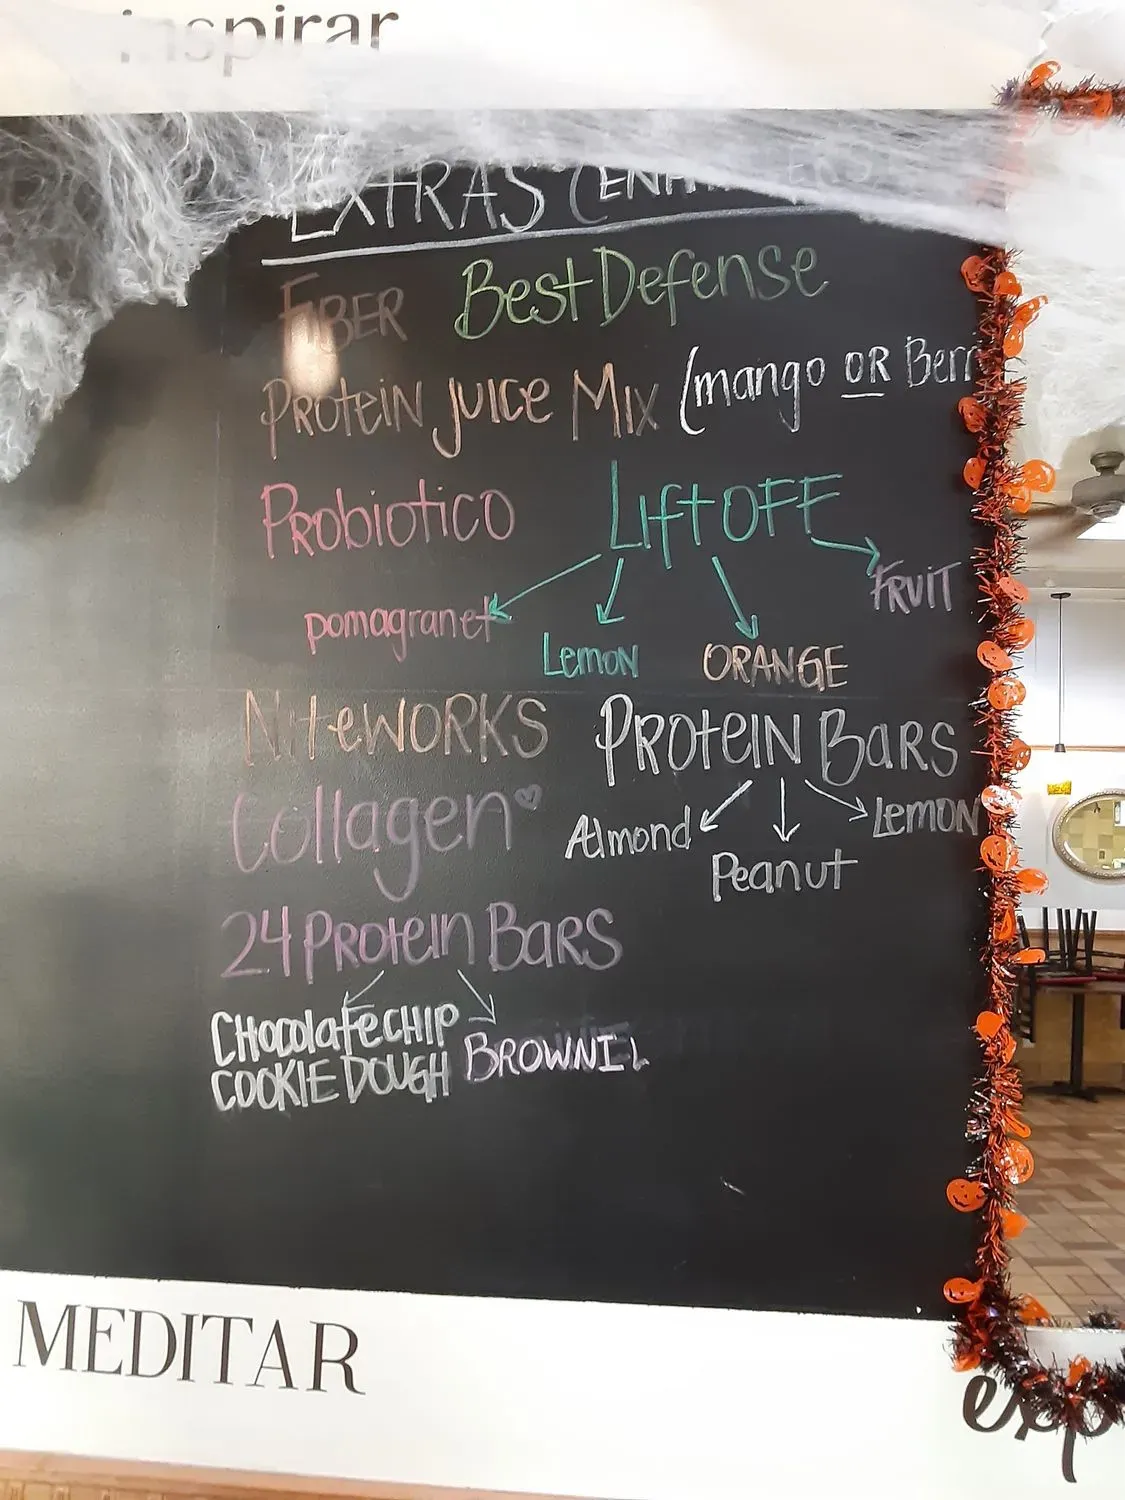 inspirar
EXTRAS
FIBER Best Defense
PROteiN JUICE MIX (mango OR Berr
PRObiotico LiftOFF
FRUIT
pomagranet LemoN ORANGE
NiteWORKS PROteIN BaRS
Collagen Almond Peanut LEMON
24 PROteIn BaRS
CHocolate CHIP
COOKIE DOUGH BROWNIE
MEDITAR
exp